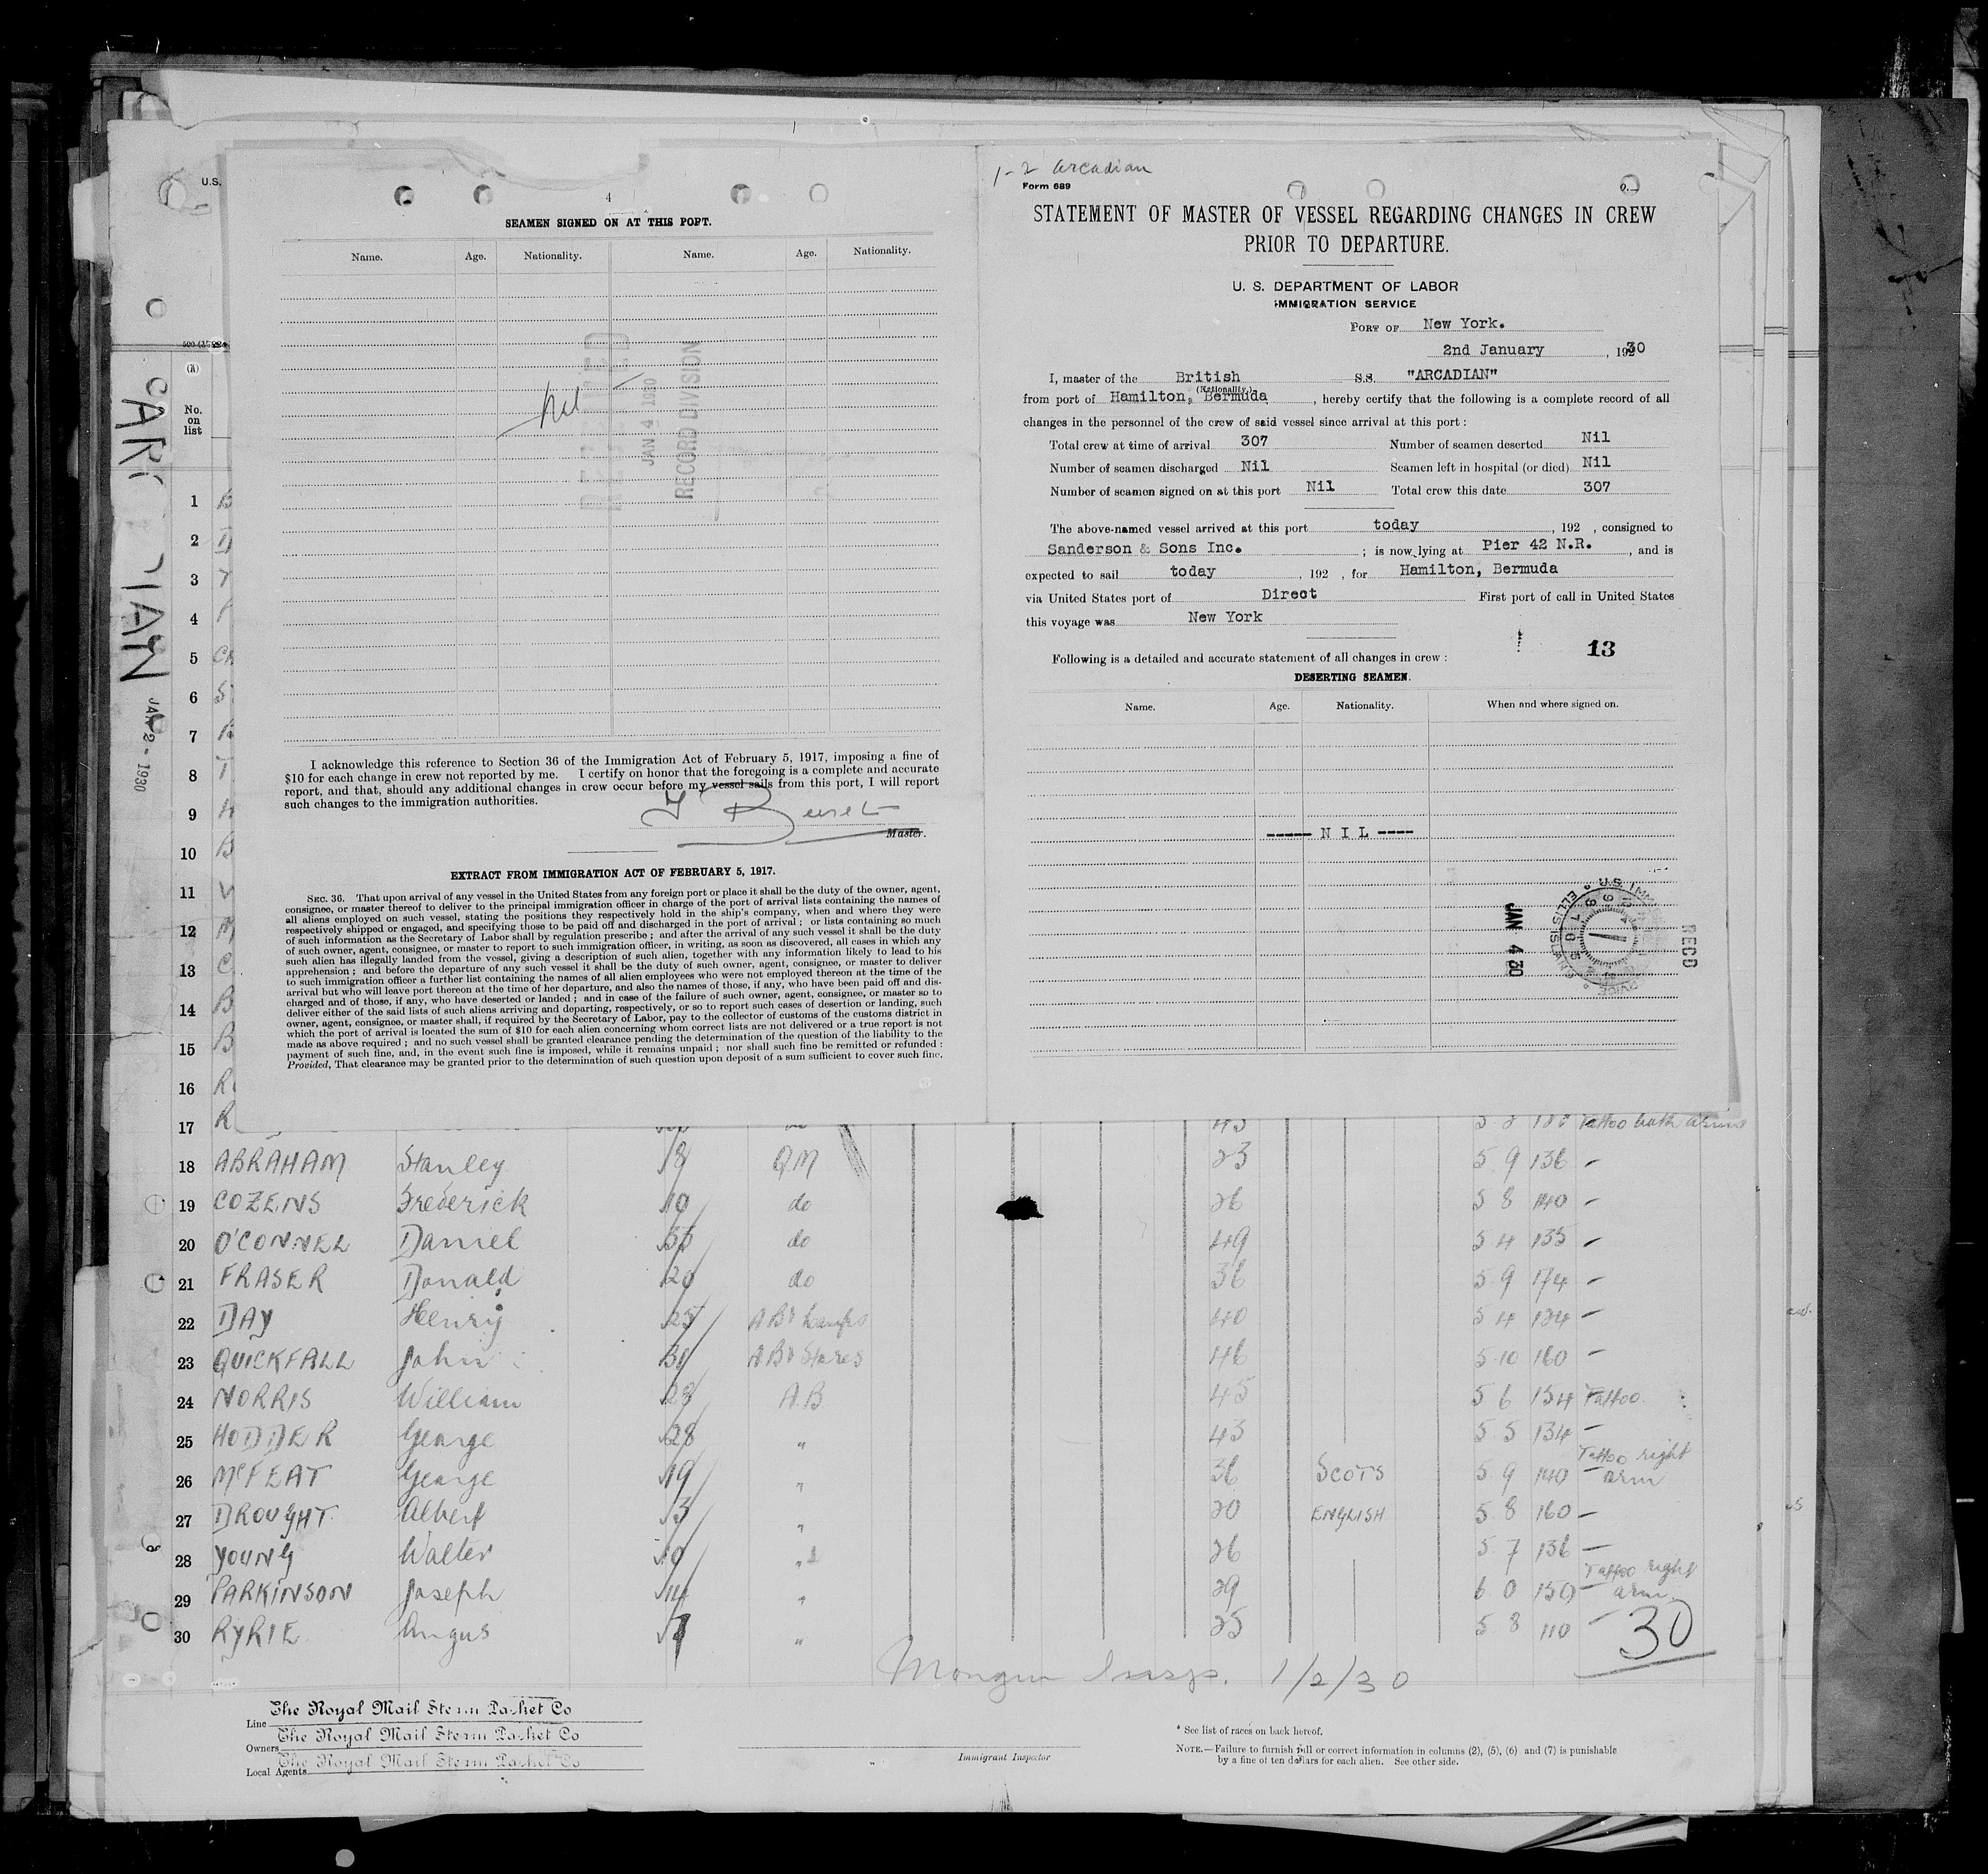 4
SEAMEN SIGNED ON AT THIS PORT.
Name. Age. Nationality. Name. Age. Nationality.
nil
RECEIVED
JAN 4 1930
RECORD DIVISION
I acknowledge this reference to Section 36 of the Immigration Act of February 5, 1917, imposing a fine of
$10 for each change in crew not reported by me. I certify on honor that the foregoing is a complete and accurate
report, and that, should any additional changes in crew occur before my vessel sails from this port, I will report
such changes to the immigration authorities.
Master.
EXTRACT FROM IMMIGRATION ACT OF FEBRUARY 5, 1917.
SEC. 36. That upon arrival of any vessel in the United States from any foreign port or place it shall be the duty of the owner, agent,
consignee, or master thereof to deliver to the principal immigration officer in charge of the port of arrival lists containing the names of
all aliens employed on such vessel, stating the positions they respectively hold in the ship's company, when and where they were
respectively shipped or engaged, and specifying those to be paid off and discharged in the port of arrival; or lists containing so much
of such information as the Secretary of Labor shall by regulation prescribe; and after the arrival of any such vessel it shall be the duty
of such owner, agent, consignee, or master to report to such immigration officer, in writing, as soon as discovered, all cases in which any
such alien has illegally landed from the vessel, giving a description of such alien, together with any information likely to lead to his
apprehension; and before the departure of any such vessel it shall be the duty of such owner, agent, consignee, or master to deliver
to such immigration officer a further list containing the names of all alien employees who were not employed thereon at the time of the
arrival but who will leave port thereon at the time of her departure, and also the names of those, if any, who have been paid off and dis-
charged and of those, if any, who have deserted or landed; and in case of the failure of such owner, agent, consignee, or master so to
deliver either of the said lists of such aliens arriving and departing, respectively, or so to report such cases of desertion or landing, such
owner, agent, consignee, or master shall, if required by the Secretary of Labor, pay to the collector of customs of the customs district in
which the port of arrival is located the sum of $10 for each alien concerning whom correct lists are not delivered or a true report is not
made as above required; and no such vessel shall be granted clearance pending the determination of the question of the liability to the
payment of such fine, and, in the event such fine is imposed, while it remains unpaid; nor shall such fine be remitted or refunded:
Provided, That clearance may be granted prior to the determination of such question upon deposit of a sum sufficient to cover such fine.
1-2 Arcadian
Form 689
STATEMENT OF MASTER OF VESSEL REGARDING CHANGES IN CREW
PRIOR TO DEPARTURE.
U. S. DEPARTMENT OF LABOR
IMMIGRATION SERVICE
PORT OF New York.
2nd January, 1930
I, master of the British S.S. "ARCADIAN"
(Nationality.)
from port of Hamilton, Bermuda, hereby certify that the following is a complete record of all
changes in the personnel of the crew of said vessel since arrival at this port:
Total crew at time of arrival 307 Number of seamen deserted Nil
Number of seamen discharged Nil Seamen left in hospital (or died) Nil
Number of seamen signed on at this port Nil Total crew this date 307
The above-named vessel arrived at this port today, 192 , consigned to
Sanderson & Sons Inc. ; is now lying at Pier 42 N.R., and is
expected to sail today, 192 , for Hamilton, Bermuda
via United States port of Direct First port of call in United States
this voyage was New York
13
Following is a detailed and accurate statement of all changes in crew:
DESERTING SEAMEN.
Name. Age. Nationality. When and where signed on.
----- N I L ----
JAN 4 30
RECD
U.S.
(1)
No.
on
list
JAN 2 - 1930
1 B
2 D
3
4
5
6 S
7
8 T
9 H
10 B
11 V
12 M
13 C
14 B
15 B
16 R
17 R 43 Tattoo both arms
18 ABRAHAM Stanley 8 QM 23 5 9 136 –
19 COZENS Frederick 10 do 26 5 8 140 –
20 O'CONNEL Daniel 35 do 49 5 4 135 –
21 FRASER Donald 20 do 36 5 9 174 –
22 DAY Henry 25 AB & Lamps 40 5 4 134 –
23 QUICKFALL John 31 AB & Stores 46 5 10 160 –
24 NORRIS William 28 A.B 45 5 6 154 Tattoo
25 HODDER George 28 " 43 5 5 134 –
26 McFEAT George 19 " 36 SCOTS 5 9 140 Tattoo right arm
27 DROUGHT Albert 3 " 20 ENGLISH 5 8 160 –
28 YOUNG Walter 10 " 26 5 7 136 –
29 PARKINSON Joseph 14 " 29 6 0 150 Tattoo right arm
30 RYRIE Angus 7 " 25 5 8 110 –
30
1/2/30
Line The Royal Mail Steam Packet Co
Owners The Royal Mail Steam Packet Co
Local Agents The Royal Mail Steam Packet Co
Immigrant Inspector
* See list of races on back hereof.
NOTE.—Failure to furnish full or correct information in columns (2), (5), (6) and (7) is punishable
by a fine of ten dollars for each alien. See other side.